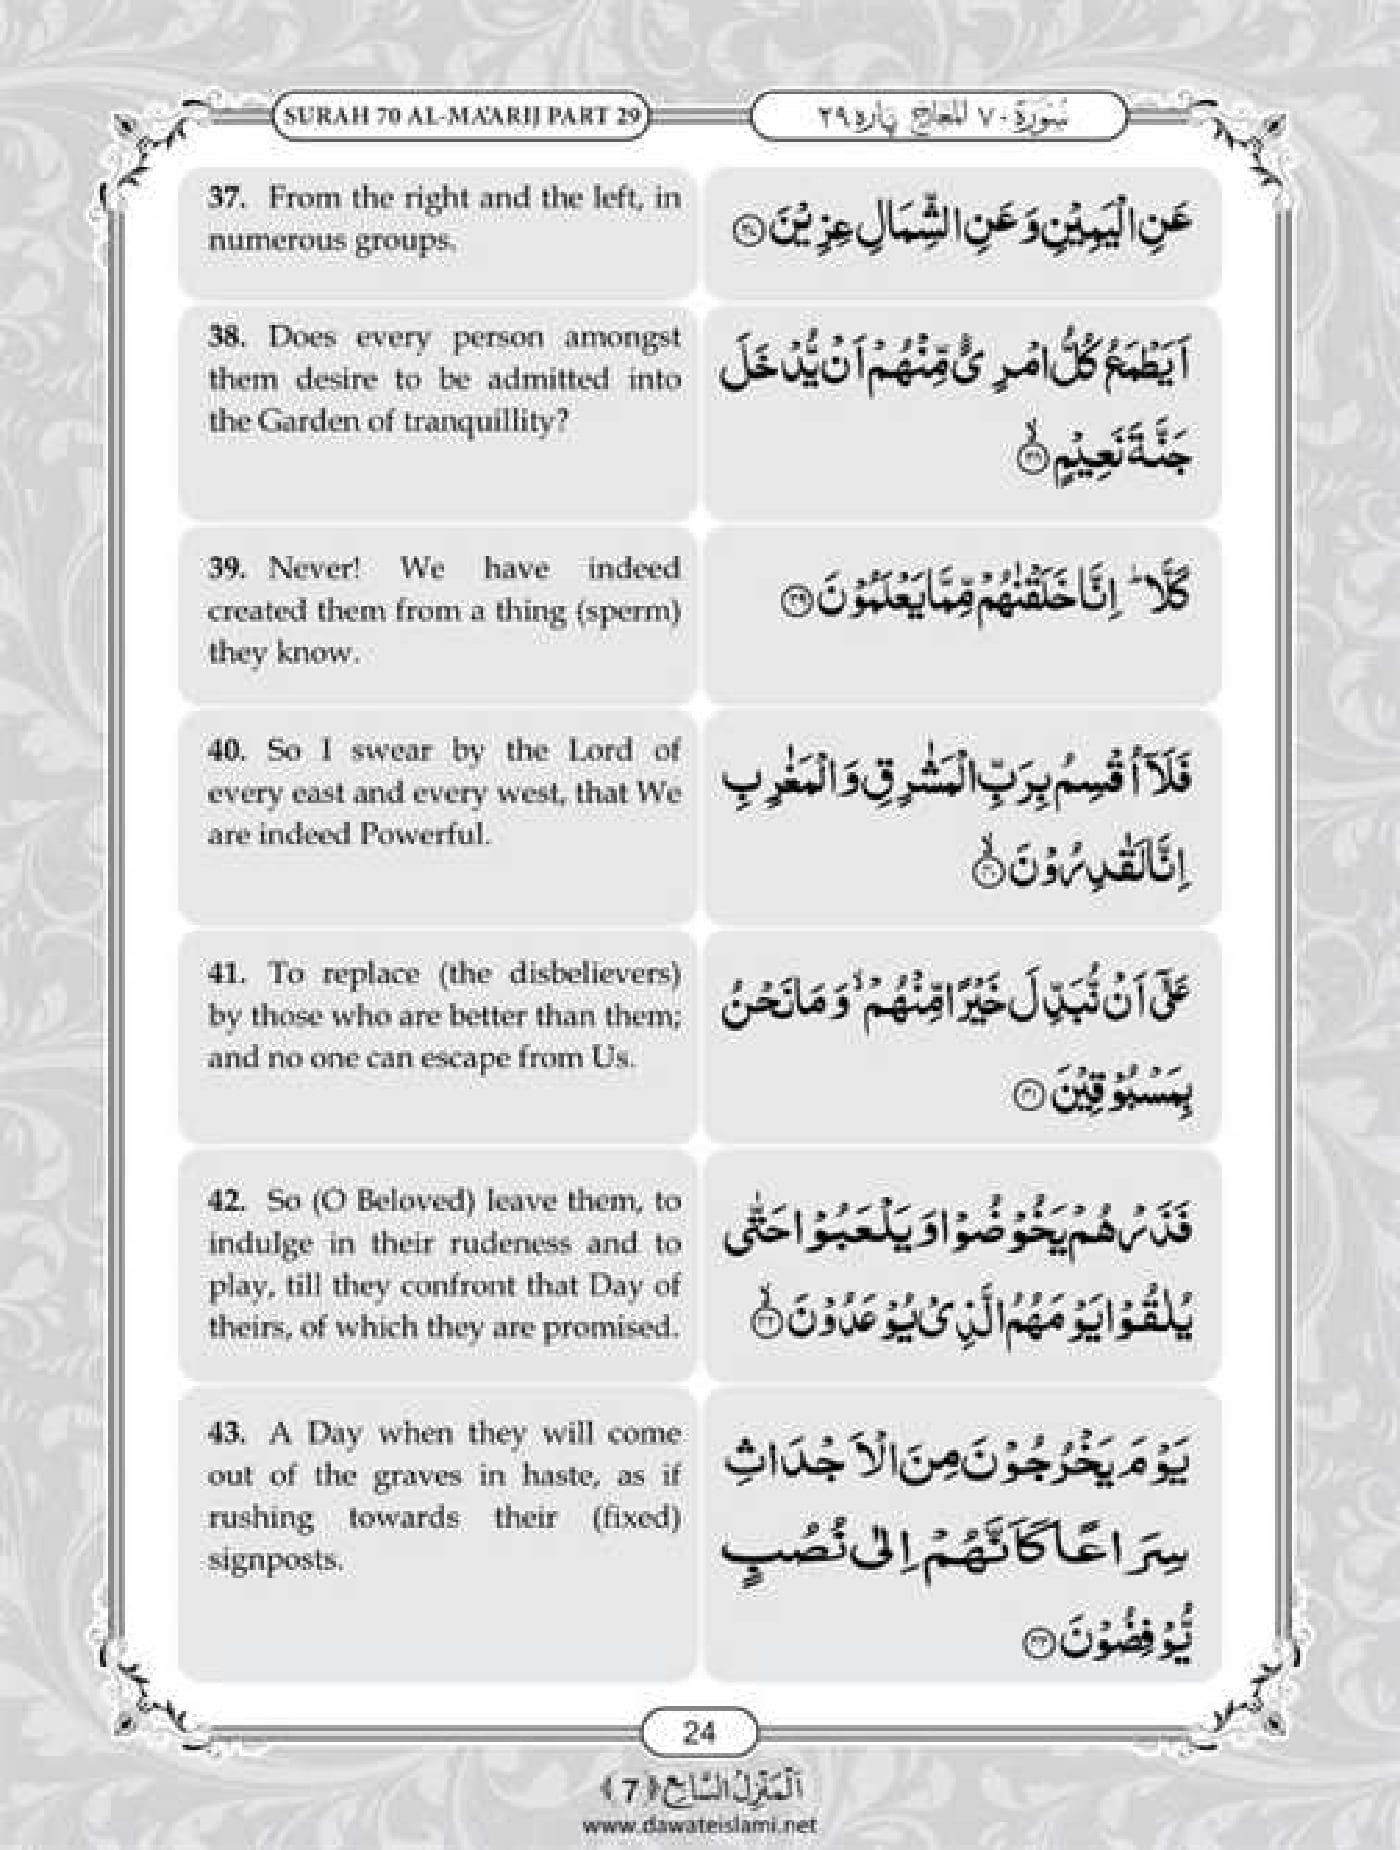 SURAH 70 AL-MA'ARIJ PART 29
سُوْرَة ٧٠ المعارج پاره ٢٩
37. From the right and the left, in
numerous groups.
عَنِ الْيَمِيْنِ وَ عَنِ الشِّمَالِ عِزِيْنَ ﴿۳۷﴾
38. Does every person amongst
them desire to be admitted into
the Garden of tranquillity?
اَيَطْمَعُ كُلُّ امْرِئٍ مِّنْهُمْ اَنْ يُّدْخَلَ
جَنَّةَ نَعِيْمٍ ﴿۳۸﴾ۙ
39. Never! We have indeed
created them from a thing (sperm)
they know.
كَلَّا ؕ اِنَّا خَلَقْنٰهُمْ مِّمَّا يَعْلَمُوْنَ ﴿۳۹﴾
40. So I swear by the Lord of
every east and every west, that We
are indeed Powerful.
فَلَاۤ اُقْسِمُ بِرَبِّ الْمَشٰرِقِ وَ الْمَغٰرِبِ
اِنَّا لَقٰدِرُوْنَ ﴿۴۰﴾ۙ
41. To replace (the disbelievers)
by those who are better than them;
and no one can escape from Us.
عَلٰۤى اَنْ نُّبَدِّلَ خَيْرًا مِّنْهُمْ ۙ وَ مَا نَحْنُ
بِمَسْبُوْقِيْنَ ﴿۴۱﴾
42. So (O Beloved) leave them, to
indulge in their rudeness and to
play, till they confront that Day of
theirs, of which they are promised.
فَذَرْهُمْ يَخُوْضُوْا وَ يَلْعَبُوْا حَتّٰى
يُلٰقُوْا يَوْمَهُمُ الَّذِىْ يُوْعَدُوْنَ ﴿۴۲﴾ۙ
43. A Day when they will come
out of the graves in haste, as if
rushing towards their (fixed)
signposts.
يَوْمَ يَخْرُجُوْنَ مِنَ الْاَجْدَاثِ
سِرَاعًا كَاَنَّهُمْ اِلٰى نُصُبٍ
يُّوْفِضُوْنَ ﴿۴۳﴾
24
اَلْمَنْزِلُ السَّابِع ﴿7﴾
www.dawateislami.net